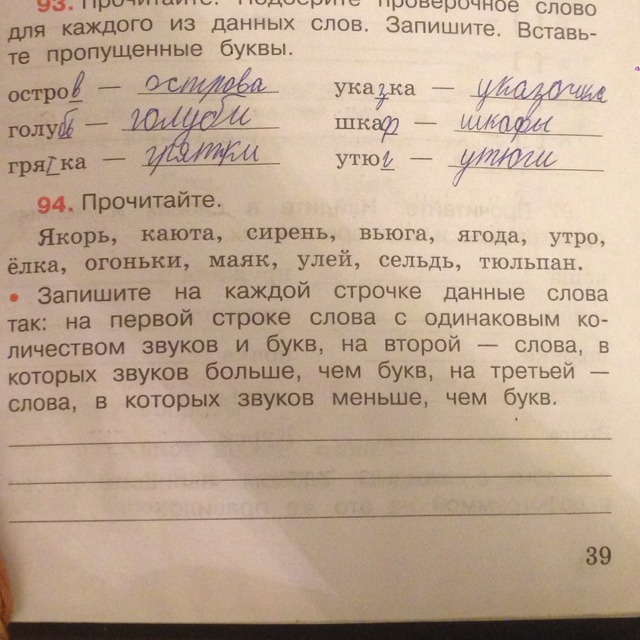 93. Прочитайте. Подберите проверочное слово
для каждого из данных слов. Запишите. Вставь-
те пропущенные буквы.
остров — острова указка — указочка
голубь — голуби шкаф — шкафы
грятка — грятки утюг — утюги
94. Прочитайте.
Якорь, каюта, сирень, вьюга, ягода, утро,
ёлка, огоньки, маяк, улей, сельдь, тюльпан.
• Запишите на каждой строчке данные слова
так: на первой строке слова с одинаковым ко-
личеством звуков и букв, на второй — слова, в
которых звуков больше, чем букв, на третьей —
слова, в которых звуков меньше, чем букв.
39